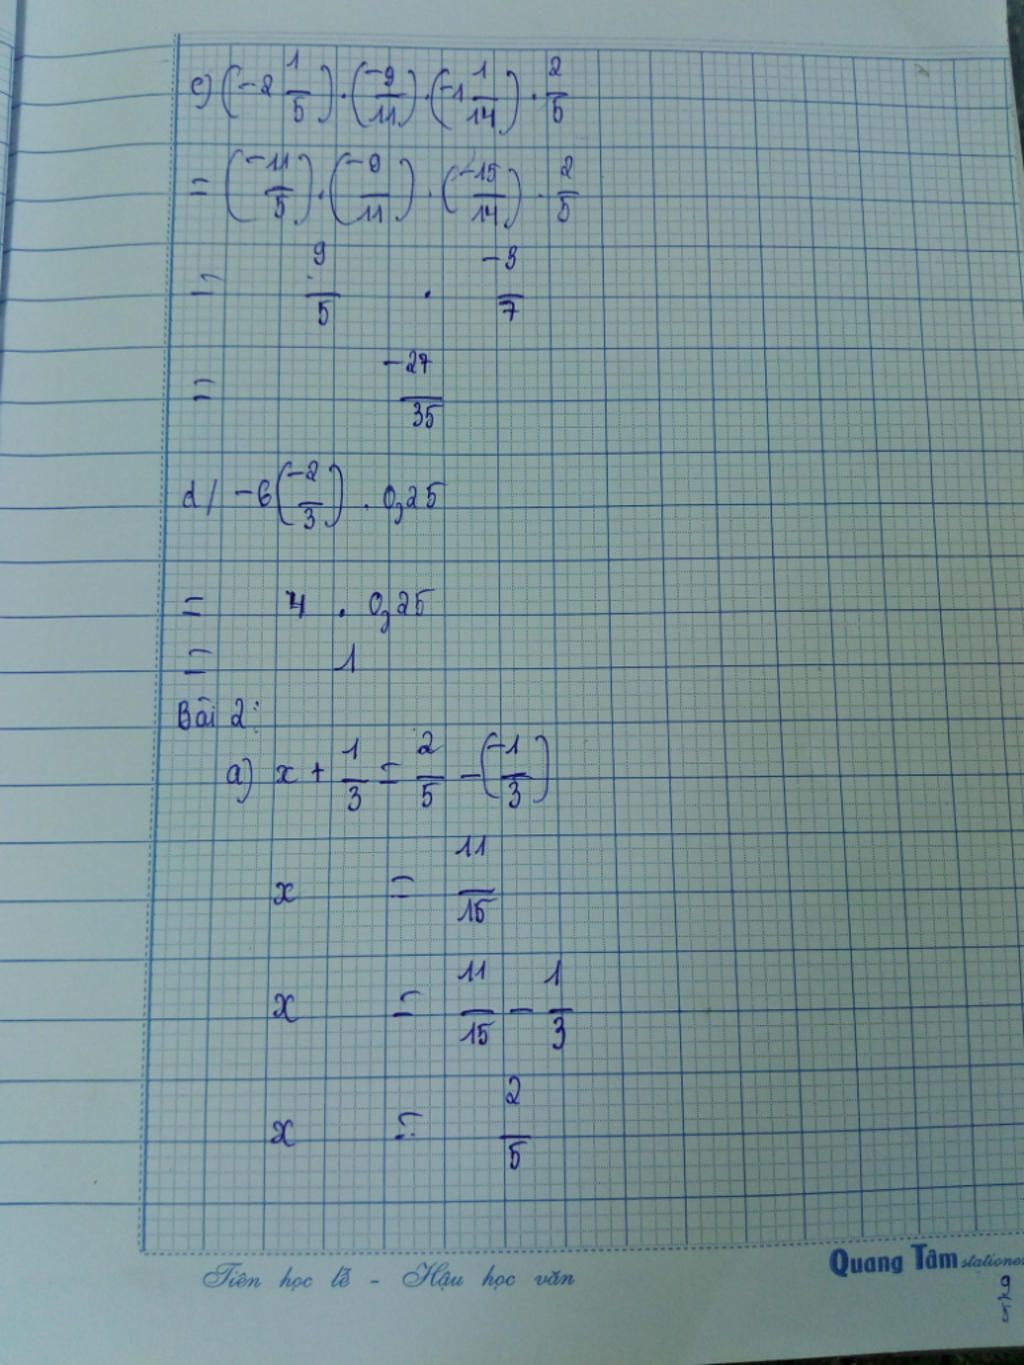 c) (-2 1/5) . (-9/11) . (-1 1/14) . 2/5
= (-11/5) . (-9/11) . (-15/14) . 2/5
= 9/5 . -3/7
= -27/35
d/ -6(-2/3) . 0,25
= 4 . 0,25
= 1
Bài 2:
a) x + 1/3 = 2/5 - (-1/3)
x = 11/15
x = 11/15 - 1/3
x = 2/5
Tiên học lễ - Hậu học văn
Quang Tâm stationer